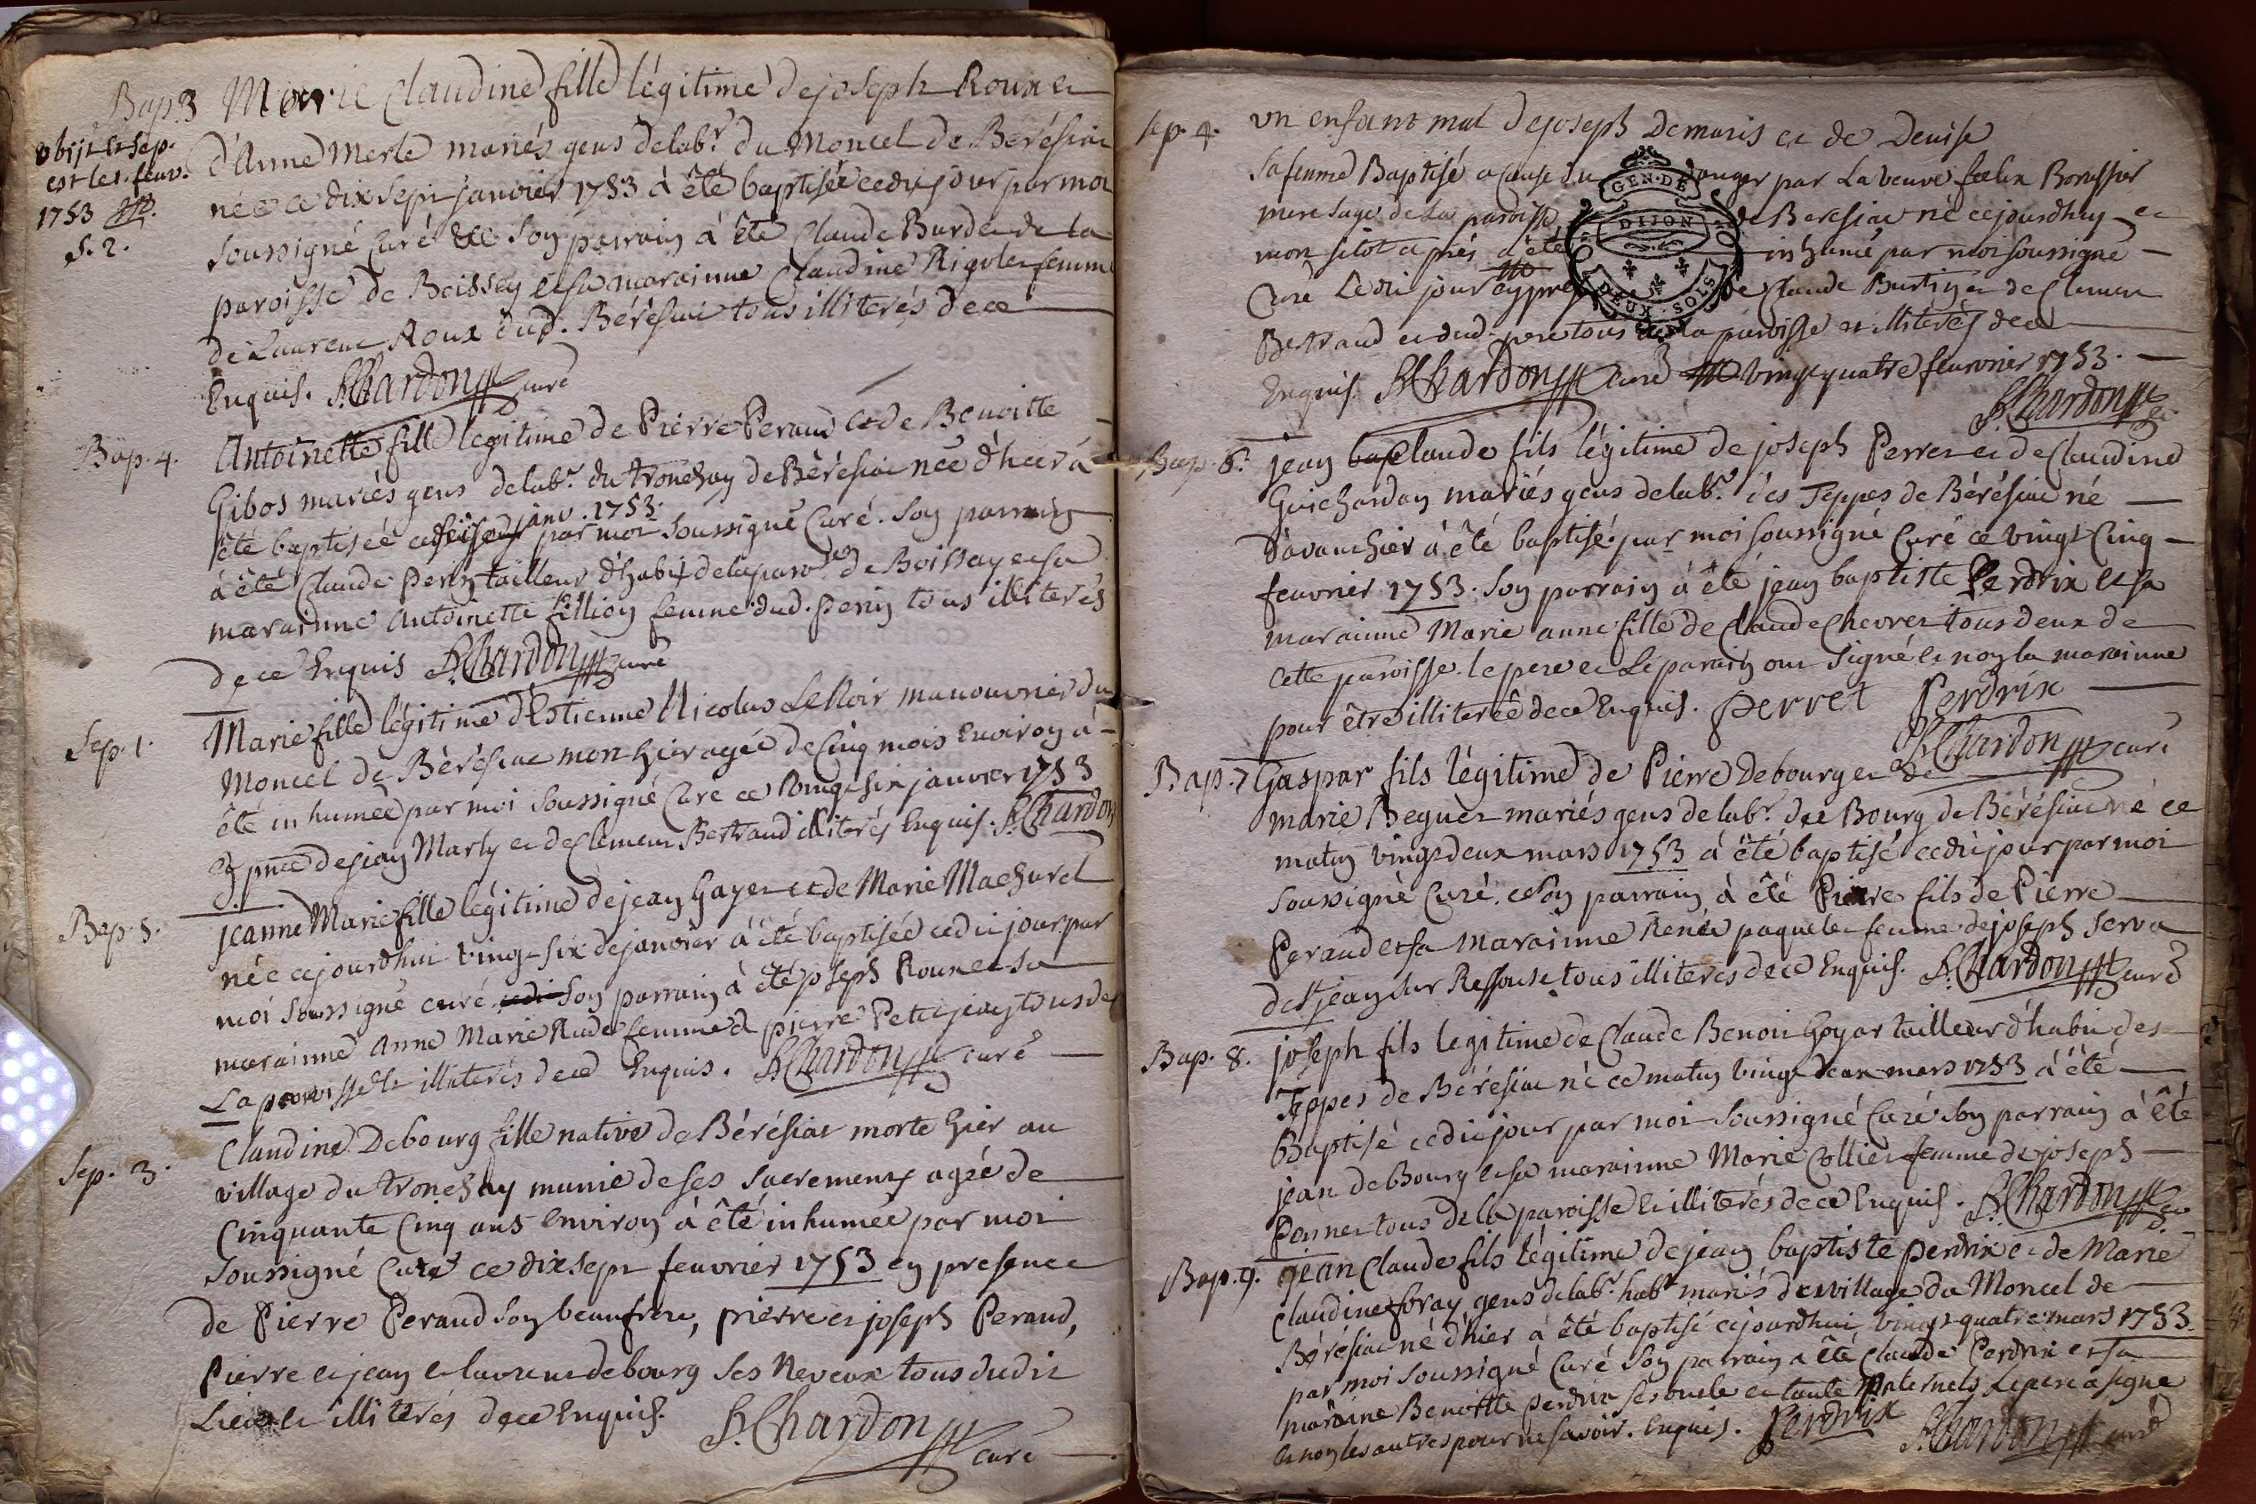 Bap. 3 Marie Claudine fille légitime de joseph Roux et
obiit et Sep.
est le 1. feuv.
1753
S. 2.
d'Anne Merle mariés gens de lab.r du Moncel de Bérésiac
née ce dix sept janvier 1753 à été baptisée cedit jour par moi
soussigné Curé Son parrain à été Claude Burdet de la
paroisse de Boissey et sa marainne Claudine Rigolet femme
de Laurent Roux dud. Bérésiac tous illiterés de ce
Enquis. Chardon curé
Bap. 4. Antoinette fille legitime de Pierre Peraud et de Benoitte
Gibos mariés gens delab.r du tronchay de Bérésiac née d'hier à
été baptisée ce janv. 1753. par moi Soussigné Curé. Son parrain
à été Claude Perin tailleur d'habit de la paro. de Boissay et sa
marainne Antoinette fillion femme dud. Perin tous illiterés
de ce Enquis Chardon curé
Sep. 1. Marie fille légitime d'Estienne Nicolas LeNoir manouvrier du
Moncel de Bérésiac mort hier agée de Cinq mois Environ à
été inhumée par moi soussigné Curé ce vingt six janvier 1753
En pnce de jean Marly et de Clement Bertraud illiterés Enquis. Chardon
Bap. 5. jeanne Marie fille légitime de jean Gayet et de Marie Machurel
née cejourdhui vingt six de janvier à été baptisée cedit jour par
moi soussigné curé. Son parrain à été joseph Roux et sa
marainne Anne Marie femme de pierre Petitjean tous de
La paroisse et illiterés de ce Enquis. Chardon curé
Sep. 3. Claudine Debourg fille native de Bérésiac morte hier au
village du tronchay munie de ses Sacrements agée de
Cinquante Cinq ans Environ à été inhumée par moi
Soussigné Curé ce dix sept feuvrier 1753 en presence
de Pierre Peraud Son beaufrere, pierre et joseph Peraud,
Pierre et jean et laurent debourg Ses Neveux tous dudit
Lieu et illiterés de ce Enquis.
Chardon
curé
sep. 4. un enfant mal de joseph Demaris et de Denise
sa femme Baptisé a cause du danger par La veuve
mere sage de la paroisse de Beresiac né cejourdhuy et
mort sitôt aprés à été inhumé par moi soussigné
GEN. DE
DIJON
DEUX. SOLS
Curé Ledit jour de Claude et de Clement
Bertraud et dud. pere tous de la paroisse et illiterés de ce
Enquis. Chardon curé vingt quatre feuvrier 1753.
Chardon
Bap. 6. jean Claude fils légitime de joseph Perret et de Claudine
Guichardan mariés gens delab.r des Teppes de Bérésiac né
d'avanthier à été baptisé par moi soussigné Curé ce vingt Cinq
feuvrier 1753. Son parrain à été jean baptiste Perdrix et sa
marainne Marie anne fille de Claude Chevret tous deux de
cette paroisse. le pere et Le parain ont signé et non la marainne
pour être illiterée de ce Enquis. Perret Perdrix
Chardon curé
Bap. 7 Gaspar fils légitime de Pierre Debourg et de
marie Beguet mariés gens delab.r du Bourg de Bérésiac né ce
matin vingt deux mars 1753 à été baptisé cedit jour par moi
soussigné Curé. et Son parrain à été Pierre fils de Pierre
Peraud et sa Marainne Renée paquelet femme de joseph Serva
de St jean sur Ressouse tous illiterés de ce Enquis. Chardon curé
Bap. 8. joseph fils legitime de Claude Benoit Goyat tailleur d'habit des
Teppes de Bérésiac né ce matin vingt deux mars 1753 à été
Baptisé cedit jour par moi Soussigné Curé Son parrain à été
jean deBourg et sa marainne Marie Collier femme de joseph
Ponnet tous de la paroisse et illiterés de ce Enquis. Chardon
Bap. 9. jean Claude fils légitime de jean baptiste Perdrix et de Marie
Claudine foray gens de lab.r hab.t mariés du village du Moncel de
Bérésiac né d'hier à été baptisé cejourdhui vingt quatre mars 1753
par moi soussigné Curé Son parrain a été Claude Perdrix et sa
maraine Benoitte Perdrix ses oncle et tante Paternels Le pere a signé
et non les autres pour ne savoir. Enquis. Perdrix Chardon curé